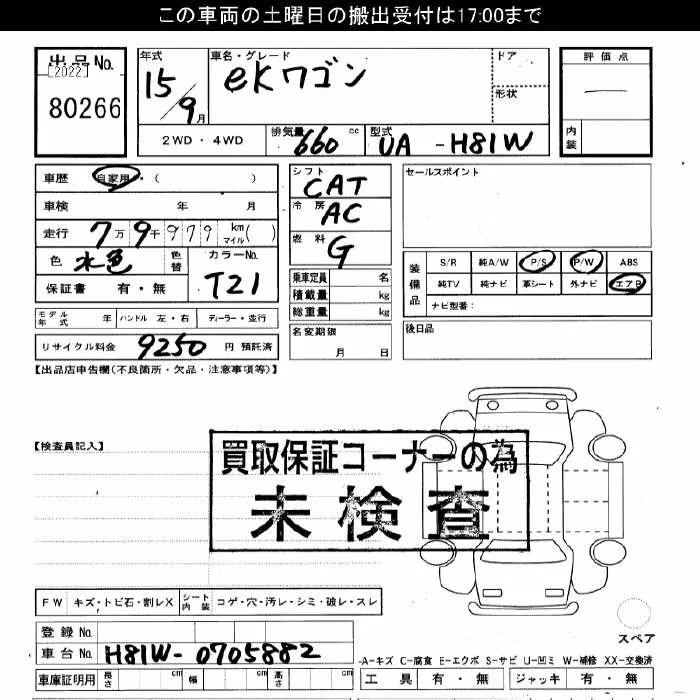 この車両の土曜日の搬出受付は17:00まで
出品No.
[2022]
80266
年式
15/9月
車名・グレード
eKワゴン
ドア
形状
評価点
内装
2WD・4WD
排気量
660 cc
型式
UA-H81W
車歴 自家用・( )
車検 年 月
走行 7万9千979 km マイル( )
色 水色
色替
カラーNo.
T21
保証書 有・無
シフト
CAT
冷房
AC
燃料
G
乗車定員 名
積載量 kg
総重量 kg
セールスポイント
装備品
S/R 純A/W P/S P/W ABS
純TV 純ナビ 革シート 外ナビ エアB
ナビ型番:
モデル年式 年 ハンドル 左・右 ディーラー・並行
名変期限
月 日
後日品
リサイクル料金 9250 円 預託済
【出品店申告欄(不良箇所・欠品・注意事項等)】
【検査員記入】
買取保証コーナーの為
未検査
FW キズ・トビ石・割レX
シート内装 コゲ・穴・汚レ・シミ・破レ・スレ
スペア
登録No.
車台No. H81W-0705882
-A-キズ C-腐食 E-エクボ S-サビ U-凹ミ W-補修 XX-交換済
車庫証明用 長さ cm 幅 cm 高さ cm
工具 有・無 ジャッキ 有・無